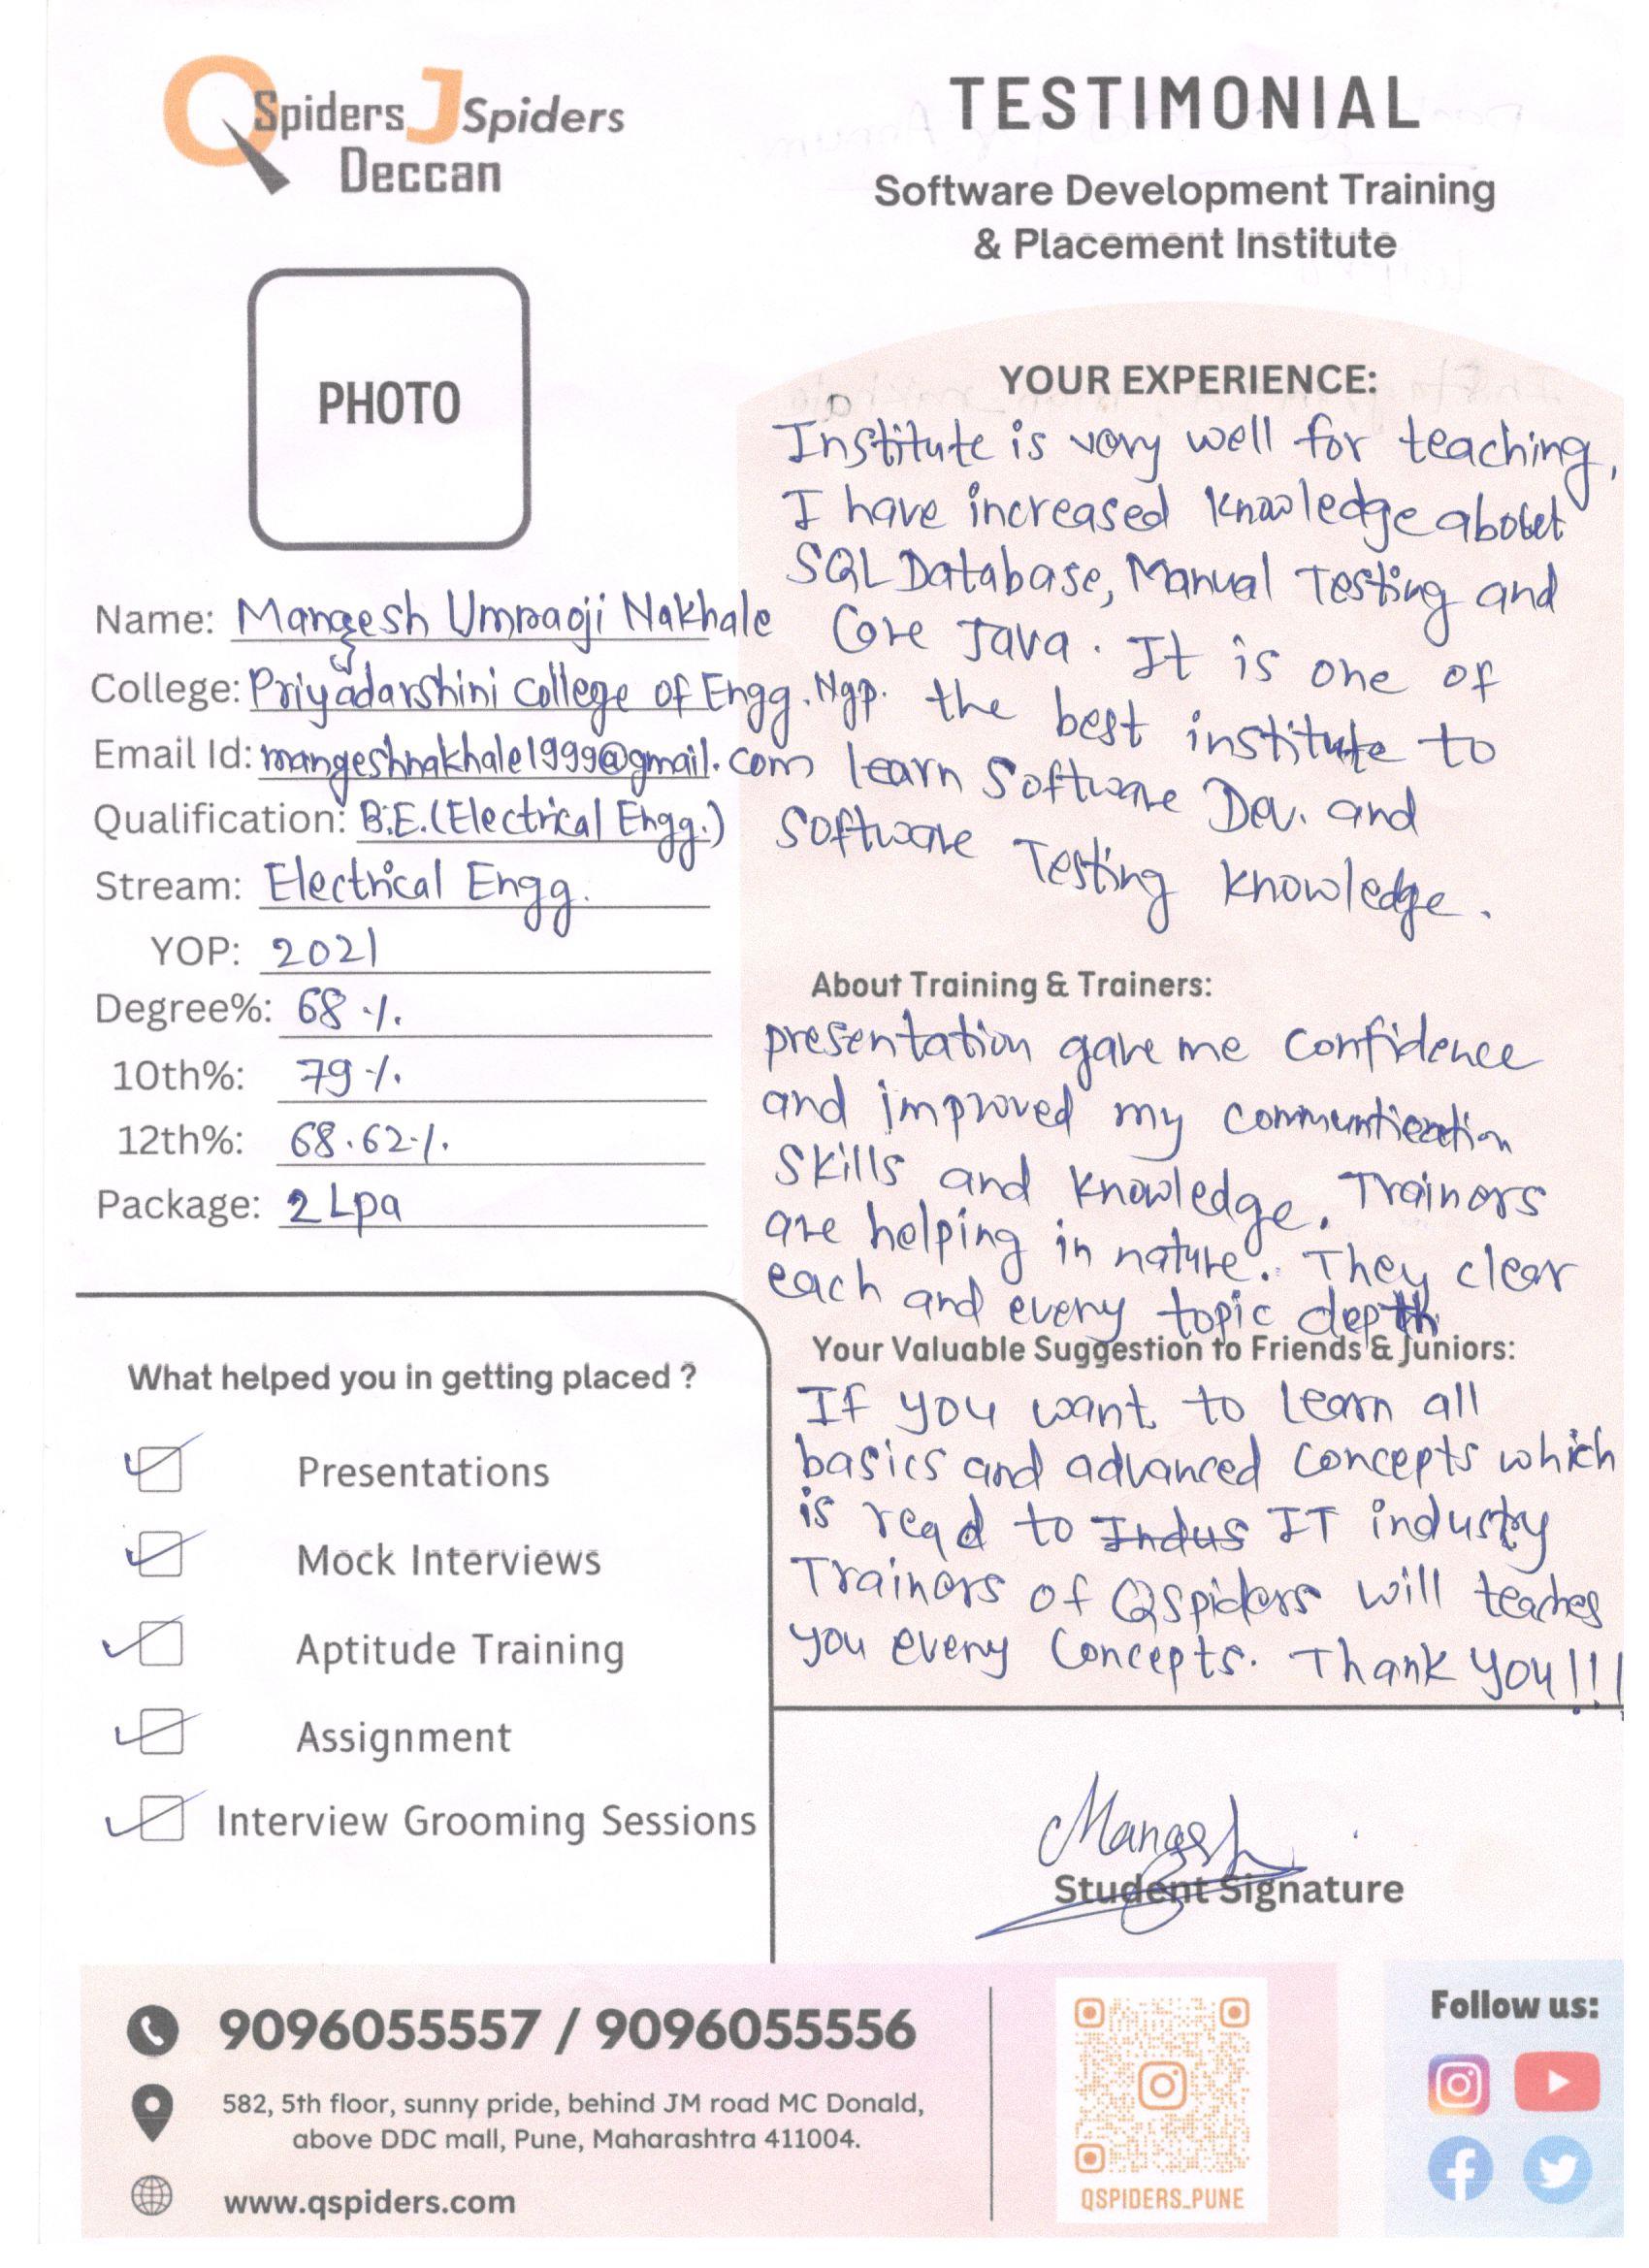 QSpiders JSpiders
Deccan
TESTIMONIAL
Software Development Training
& Placement Institute
PHOTO
Name: Mangesh Umraoji Nakhale
College: Priyadarshini College of Engg. Ngp.
Email Id: mangeshnakhale1999@gmail.com
Qualification: B.E. (Electrical Engg.)
Stream: Electrical Engg.
YOP: 2021
Degree%: 68 %
10th%: 79 %
12th%: 68.62 %
Package: 2 Lpa
What helped you in getting placed ?
Presentations
Mock Interviews
Aptitude Training
Assignment
Interview Grooming Sessions
YOUR EXPERIENCE:
Institute is very well for teaching,
I have increased knowledge about
SQL Database, Manual Testing and
Core Java. It is one of
the best institute to
learn Software Dev. and
Software Testing knowledge.
About Training & Trainers:
presentation gave me confidence
and improved my communication
skills and knowledge. Trainers
are helping in nature. They clear
each and every topic depth
Your Valuable Suggestion to Friends & Juniors:
If you want to learn all
basics and advanced concepts which
is read to Indus IT industry
Trainers of QSpiders will teaches
you every concepts. Thank you!!!
Mangesh
Student Signature
9096055557 / 9096055556
582, 5th floor, sunny pride, behind JM road MC Donald,
above DDC mall, Pune, Maharashtra 411004.
www.qspiders.com
QSPIDERS_PUNE
Follow us: